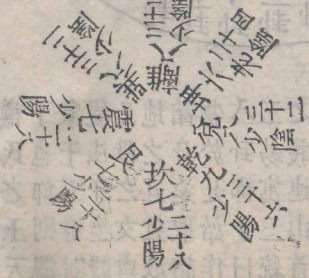 坎七少陽
二十八
艮七少陽
二十八
震七少陽
二十八
巽八少陰
三十二
離八少陰
三十二
坤六
二十四
兌八少陰
三十二
乾九少陽
三十六